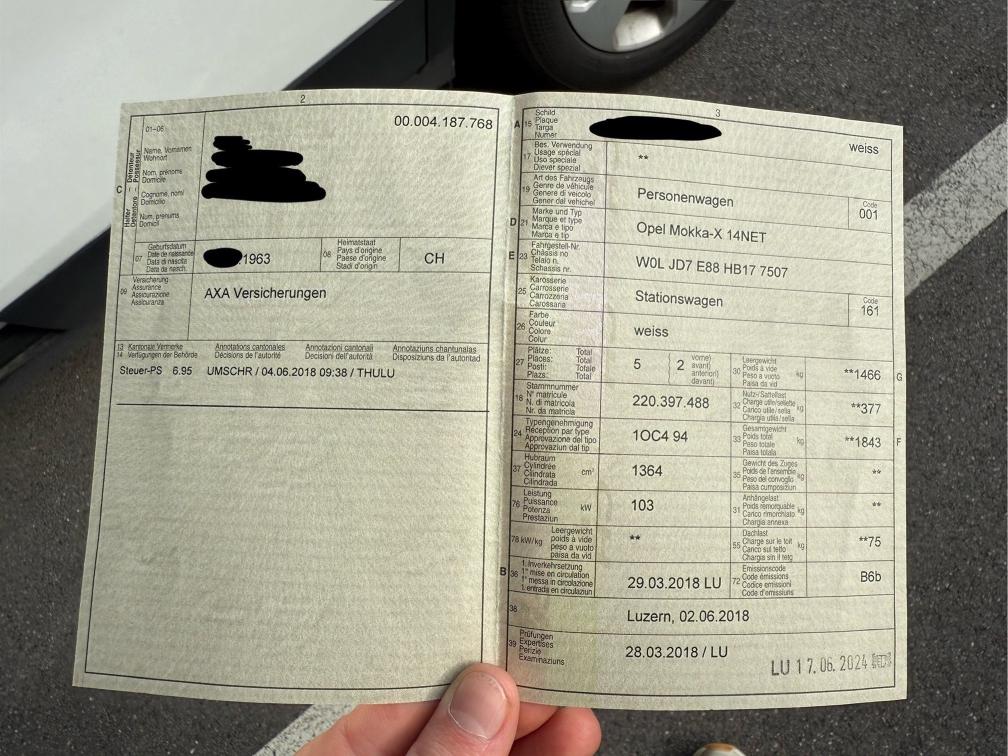 2
00.004.187.768
01–06
Name, Vornamen
Wohnort
Nom, prénoms
Domicile
Cognome, nomi
Domicilio
Num, prenums
Domicil
C
Halter Détenteur
Detentore Possessur
07
Geburtsdatum
Date de naissance
Data di nascita
Data da nasch.
.1963
08
Heimatstaat
Pays d'origine
Paese d'origine
Stadi d'origin
CH
09
Versicherung
Assurance
Assicurazione
Assicuranza
AXA Versicherungen
13 Kantonale Vermerke
14 Verfügungen der Behörde
Annotations cantonales
Décisions de l'autorité
Annotazioni cantonali
Decisioni dell'autorità
Annotaziuns chantunalas
Disposiziuns da l'autoritad
Steuer-PS 6.95 UMSCHR / 04.06.2018 09:38 / THULU
3
A 15
Schild
Plaque
Targa
Numer
weiss
17
Bes. Verwendung
Usage spécial
Uso speciale
Diever spezial
**
19
Art des Fahrzeugs
Genre de véhicule
Genere di veicolo
Gener dal vehichel
Personenwagen
Code
001
D 21
Marke und Typ
Marque et type
Marca e tipo
Marca e tip
Opel Mokka-X 14NET
E 23
Fahrgestell-Nr.
Châssis no
Telaio n.
Schassis nr.
W0L JD7 E88 HB17 7507
25
Karosserie
Carrosserie
Carrozzeria
Carossaria
Stationswagen
Code
161
26
Farbe
Couleur
Colore
Colur
weiss
27
Plätze: Total
Places: Total
Posti: Totale
Plazs: Total
5
2
vorne)
avant)
anteriori)
davant)
30
Leergewicht
Poids à vide
Peso a vuoto
Paisa da vid
kg
**1466
G
18
Stammnummer
N° matricule
N. di matricola
Nr. da matricla
220.397.488
32
Nutz-/Sattellast
Charge utile/sellette
Carico utile/sella
Chargia utila/sella
kg
**377
24
Typengenehmigung
Réception par type
Approvazione del tipo
Approvaziun dal tip
1OC4 94
33
Gesamtgewicht
Poids total
Peso totale
Paisa totala
kg
**1843
F
37
Hubraum
Cylindrée
Cilindrata
Cilindrada
cm³
1364
35
Gewicht des Zuges
Poids de l'ensemble
Peso del convoglio
Paisa cumposiziun
kg
**
76
Leistung
Puissance
Potenza
Prestaziun
kW
103
31
Anhängelast
Poids remorquable
Carico rimorchiato
Chargia annexa
kg
**
78 kW/kg
Leergewicht
poids à vide
peso a vuoto
paisa da vid
**
55
Dachlast
Charge sur le toit
Carico sul tetto
Chargia sin il tetg
kg
**75
B 36
1. Inverkehrsetzung
1re mise en circulation
1a messa in circolazione
1. entrada en circulaziun
29.03.2018 LU
72
Emissionscode
Code émissions
Codice emissioni
Code d'emissiuns
B6b
38
Luzern, 02.06.2018
39
Prüfungen
Expertises
Perizie
Examinaziuns
28.03.2018 / LU
LU 17.06.2024